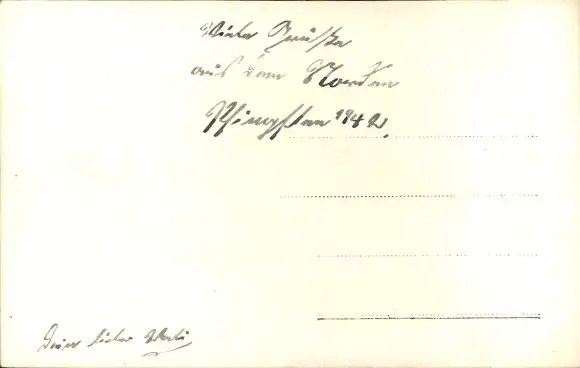 Viele Grüße
aus dem Norden
Pfingsten 1942.
Dein lieber Vati